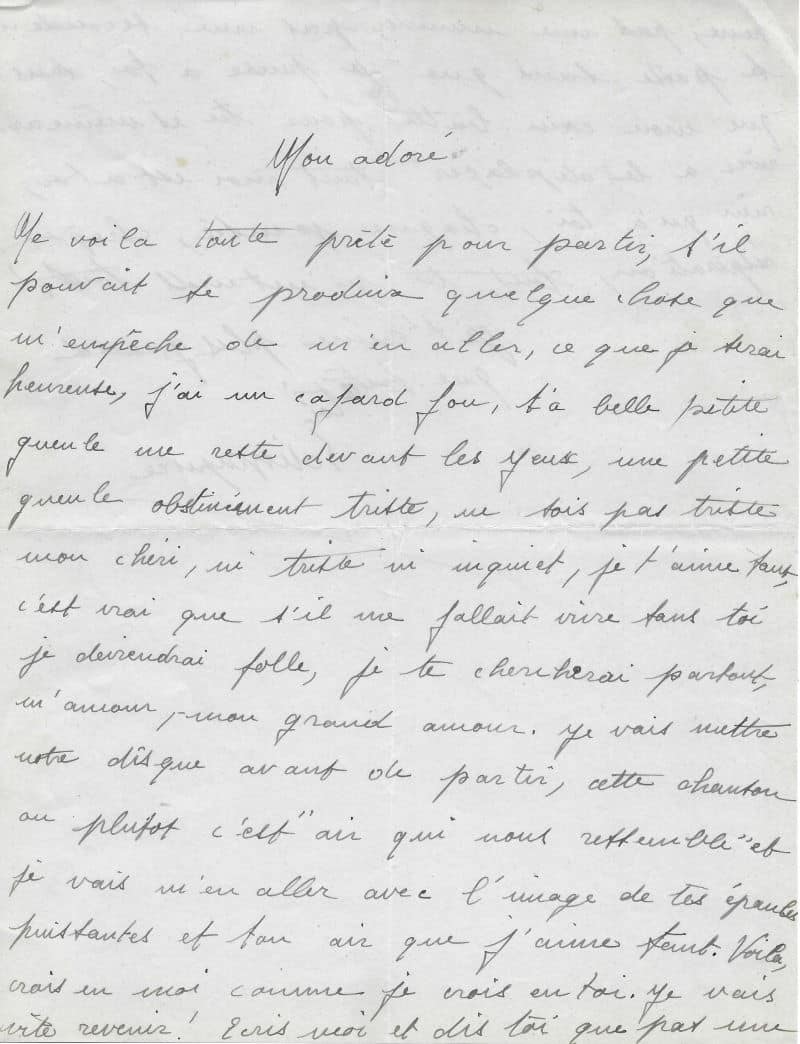 Mon adoré
Me voila toute prête pour partir, s'il
pouvait se produire quelque chose que
m'empêche de m'en aller, ce que je serai
heureuse, j'ai un cafard fou, ta belle petite
gueule me reste devant les yeux, une petite
gueule obstinément triste, ne sois pas triste
mon chéri, ni triste ni inquiet, je t'aime tant,
c'est vrai que s'il me fallait vivre sans toi
je deviendrai folle, je te chercherai partout,
m'amour, mon grand amour. Je vais mettre
notre disque avant de partir, cette chanson
ou plutot c'est "air qui nous ressemble" et
je vais m'en aller avec l'image de tes épaules
puissantes et ton air que j'aime tant. Voila,
crois en moi comme je crois en toi. Je vais
vite revenir! Ecris moi et dis toi que pas une